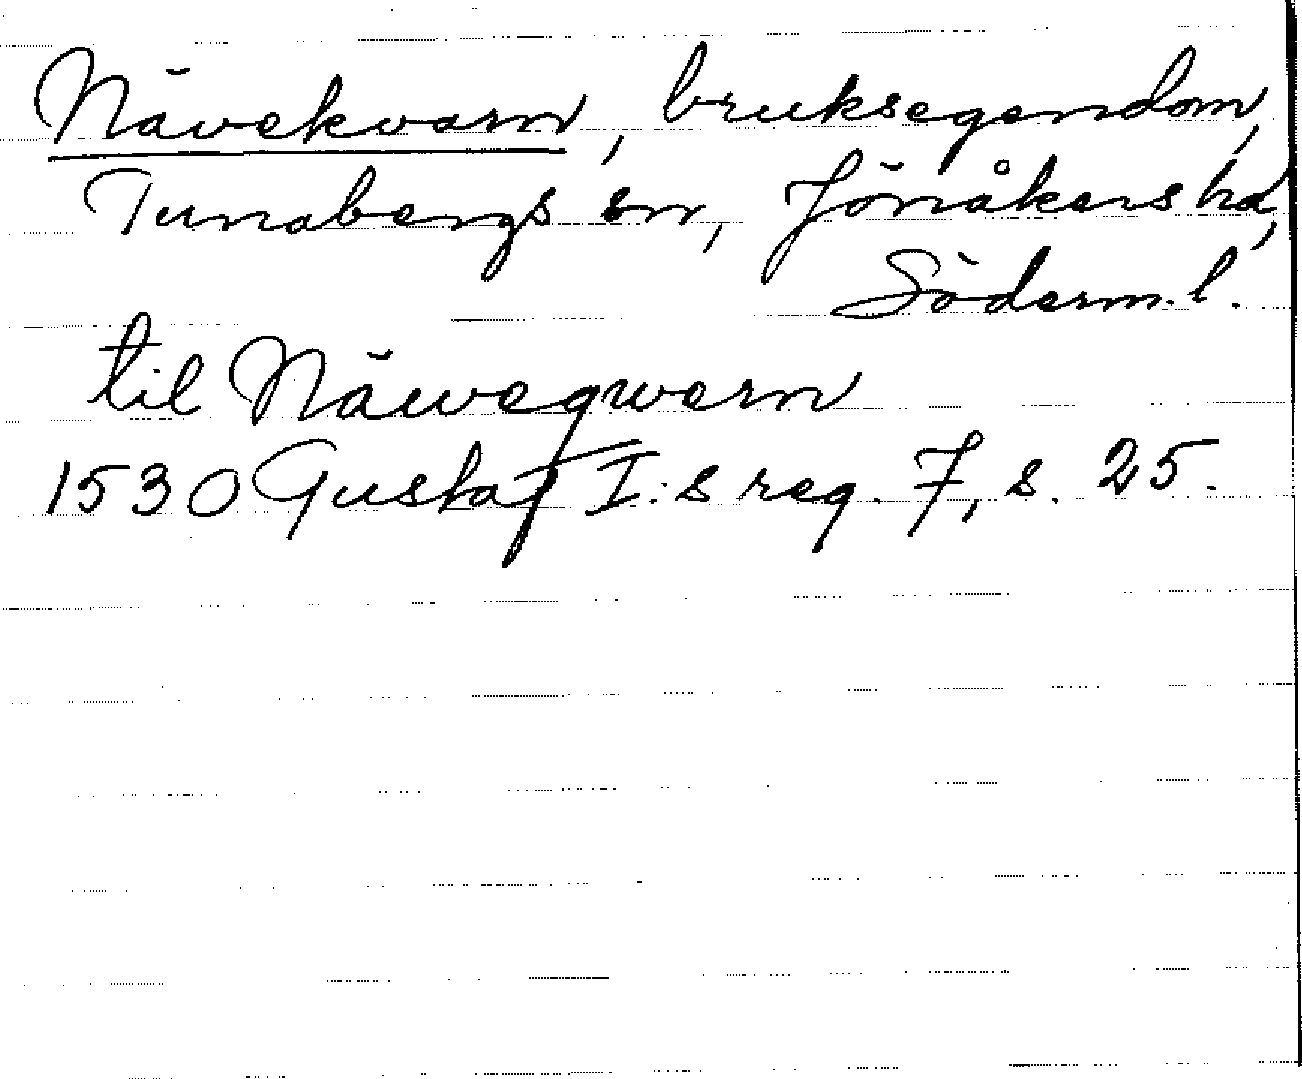 Nävekvarn, bruksegendom,
Tunabergs sn, Jönåkers hd,
Söderm.l.
til Näwegwern
1530 Gustaf I:s reg. 7, s. 25.